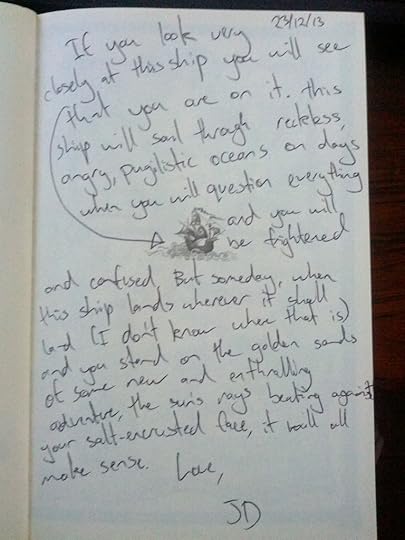 23/12/13
If you look very
closely at this ship you will see
that you are on it. This
ship will sail through reckless,
angry, pugilistic oceans on days
when you will question everything
and you will
be frightened
and confused. But someday, when
this ship lands wherever it shall
land (I don't know where that is)
and you stand on the golden sands
of some new and enthralling
adventure, the sun's rays beating against
your salt-encrusted face, it will all
make sense. Love,
JD